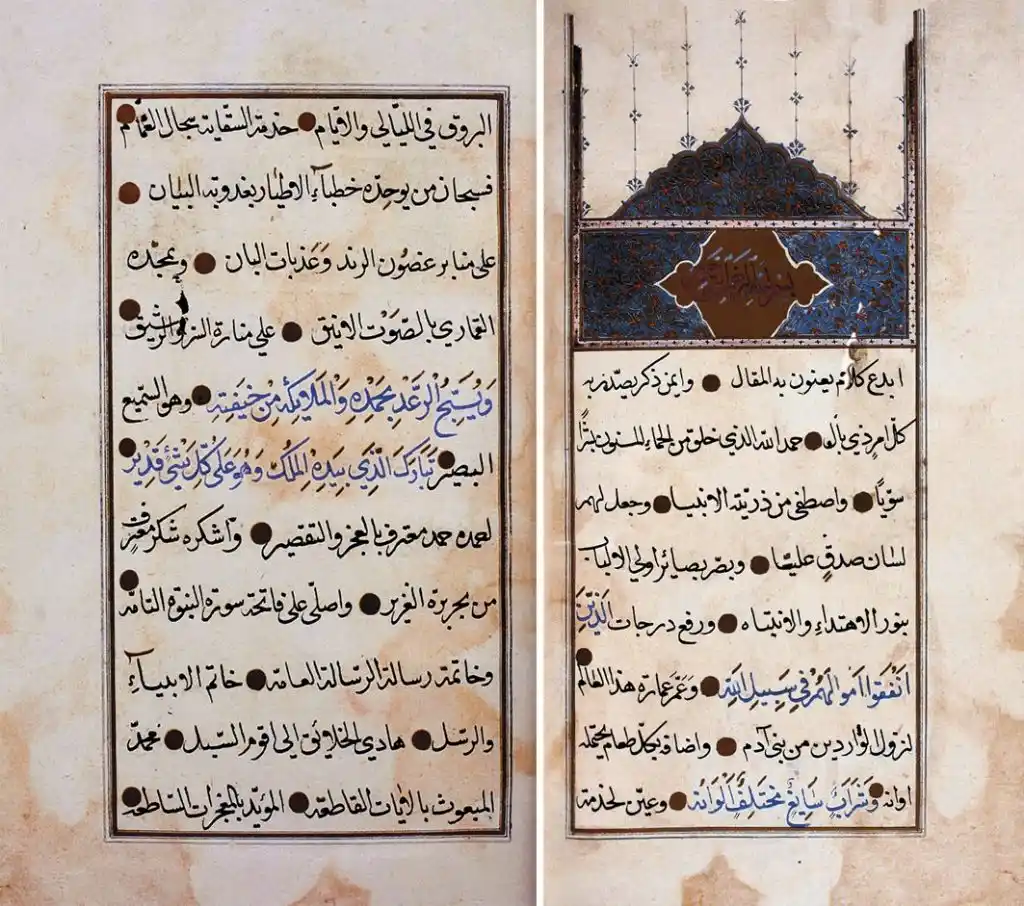 بسم الله الرحمن الرحيم
ابدع كلام يعنون به المقال وايمن ذكر يصدّر به
كلّ امرٍ ذي بال حمد الله الذي خلق من الحماء المسنون بشرًا
سويّا واصطفى من ذريّته الانبياء وجعل لهم
لسان صدقٍ عليّا وبصّر بصائر اولي الالباب
بنور الاهتداء والانتباه ورفع درجات الَّذِينَ
اَنْفَقُوا اَمْوالَهُمْ فِي سَبِيلِ اللهِ وعَمّر عمارة هذا العالم
لنزول الواردين من بني آدم واضافه بكل طعام يحتمله
اوانه وَشَرَابٌ سَايِغٌ مُخْتَلِفٌ اَلْوَانُهُ وعيّن لخدمة
البروق في الليالي والايام خدمة السقاية سجال الغمائم
فسبحان من يوحده خطباء الاطيار بعذوبة البيان
على منابر غصون الرند وَعَذبات البان ويمجّده
القماري بالصّوْت الانيق على منارة السرو الرشيق
وَيُسَبِّحُ الرَّعْدُ بِحَمْدِهِ وَالْمَلَايِكَةُ مِنْ خِيفَتِهِ وهو السّميع
البصير تَبَارَكَ الَّذِي بِيَدِهِ الْمُلْكُ وَهُوَ عَلَى كُلِّ شَيْءٍ قَدِيْرٌ
نحمده حمد معترف بالعجز والتقصير وآشكره شكر مغترف
من بحر برّه الغزير واصلّى على فاتحة سورة النبوّة التامّة
وخاتمة رسالة الرسالة العامة خاتم الانبياء
والرسل هادي الخلائق الى اقوم السّبل محمدٍ
المبعوث بالايات القاطعة المؤيّد بالمعجزات الساطعة